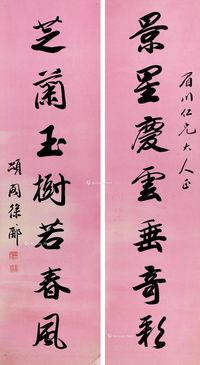 景星慶雲垂奇彩
眉川仁兄大人正
芝蘭玉樹若春風
頌閣徐郙